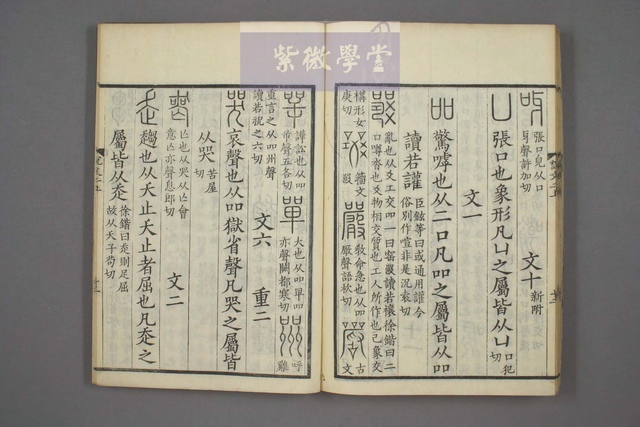 紫微學堂
呀 張口皃从口牙聲許加切 文十 新附
凵 張口也象形凡凵之屬皆从凵 口犯切
文一
吅 驚嘑也从二口凡吅之屬皆从吅
讀若讙 臣鉉等曰或通用讙今俗別作喧非是況袁切
𤕦 亂也从爻工交吅一曰窒𤕦讀若禳徐鍇曰二口噂沓也爻物相交質也工人所作也己象交
構形女庚切 籒文𤕦 嚴 教命急也从吅𠪚聲語杴切 古文
咢 譁訟也从吅屰聲五各切 單 大也从吅𠦒吅亦聲闕都寒切 喌 呼雞
重言之从吅州聲讀若祝之六切 文六 重二
哭 哀聲也从吅獄省聲凡哭之屬皆
从哭 苦屋切
喪 亾也从哭从亾會意亾亦聲息郎切 文二
走 趨也从夭止夭止者屈也凡走之
屬皆从走 徐鍇曰走則足屈故从夭子苟切